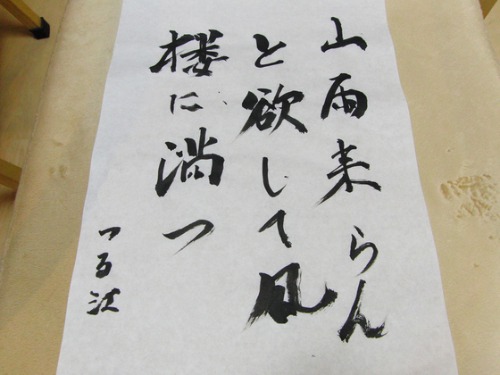 山雨来らん
と欲して風
楼に満つ
つる江